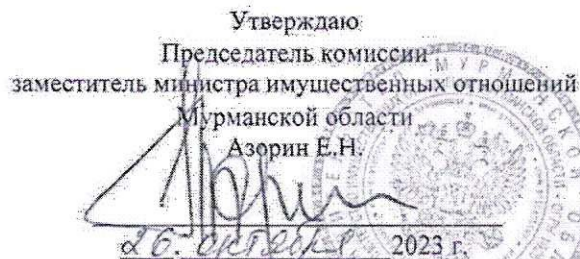 Утверждаю
Председатель комиссии
заместитель министра имущественных отношений
Мурманской области
Азорин Е.Н.
26. октября 2023 г.